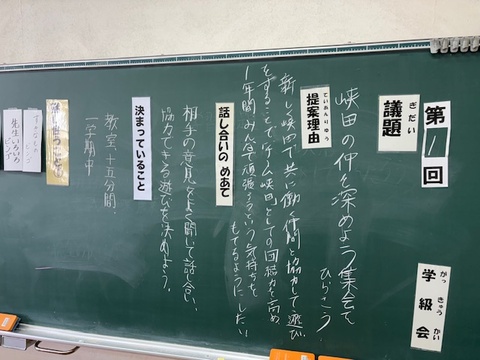 第1回
学級会
がっきゅうかい
議題
ぎだい
峡田の仲を深めよう集会を
ひらこう
提案理由
ていあんりゆう
新しい峡田で、共に働く仲間と協力して遊び
をすることで、「チーム峡田」としての団結力を高め、
1年間、みんなで頑張ろうという気持ちを
もてるようにしたい。
話し合いの めあて
相手の意見をよく聞いて話し合い、
協力できる遊びを決めよう。
決まっていること
教室、十五分間、
一学期中
先生いろいろ